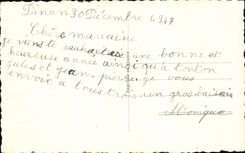 Dinan 30 Décembre 1947
Chère marraine
je viens te souhaiter une bonne et
heureuse année ainsi qu'à tonton
Jules et Jean-pierre je vous
envoie a tous trois un gros baiser
Monique